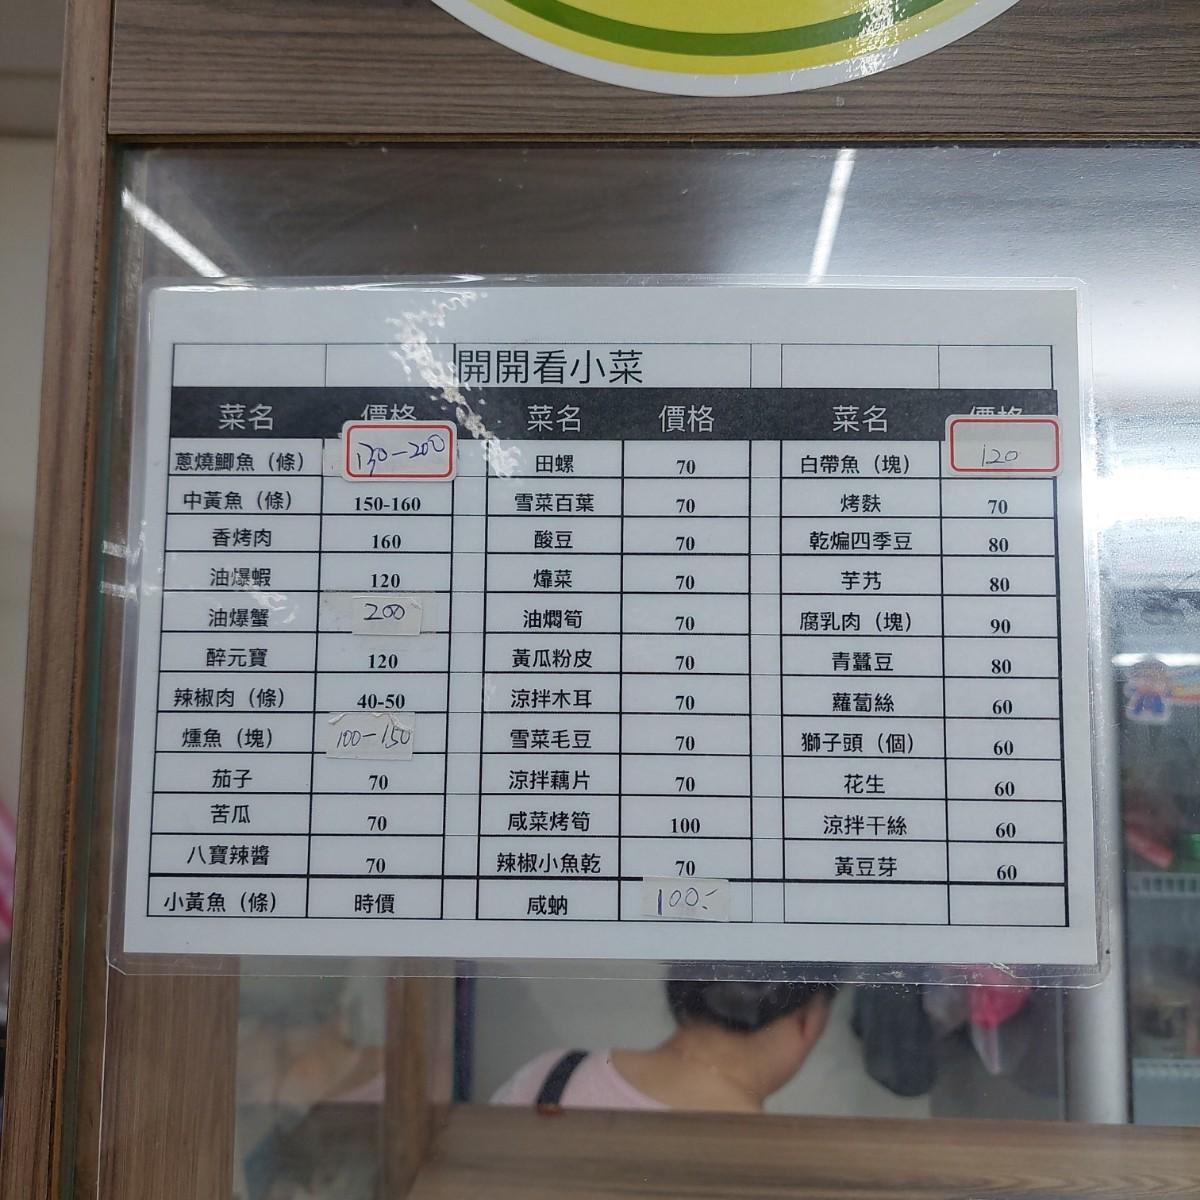 開開看小菜
菜名 價格 菜名 價格 菜名 價格
蔥燒鯽魚（條） 130-200 田螺 70 白帶魚（塊） 120
中黃魚（條） 150-160 雪菜百葉 70 烤麩 70
香烤肉 160 酸豆 70 乾煸四季豆 80
油爆蝦 120 㸆菜 70 芋艿 80
油爆蟹 200 油燜筍 70 腐乳肉（塊） 90
醉元寶 120 黃瓜粉皮 70 青蠶豆 80
辣椒肉（條） 40-50 涼拌木耳 70 蘿蔔絲 60
燻魚（塊） 100-150 雪菜毛豆 70 獅子頭（個） 60
茄子 70 涼拌藕片 70 花生 60
苦瓜 70 咸菜烤筍 100 涼拌干絲 60
八寶辣醬 70 辣椒小魚乾 70 黃豆芽 60
小黃魚（條） 時價 咸蚋 100.-